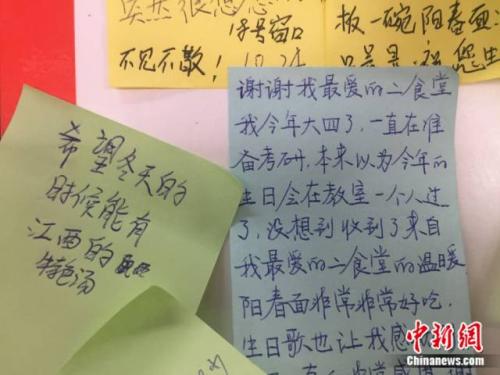 突然很想您
13号窗口
不见不散！ 10.24
板一碗阳春面
祝您生
谢谢我最爱的二食堂
我今年大四了，一直在准
备考研，本来以为今年的
生日会在教室一个人过
了，没想到收到了来自
我最爱的二食堂的温暖
阳春面非常非常好吃，
生日歌也让我感
希望冬天的
时候能有
江西的
特色汤
中新网
Chinanews.com